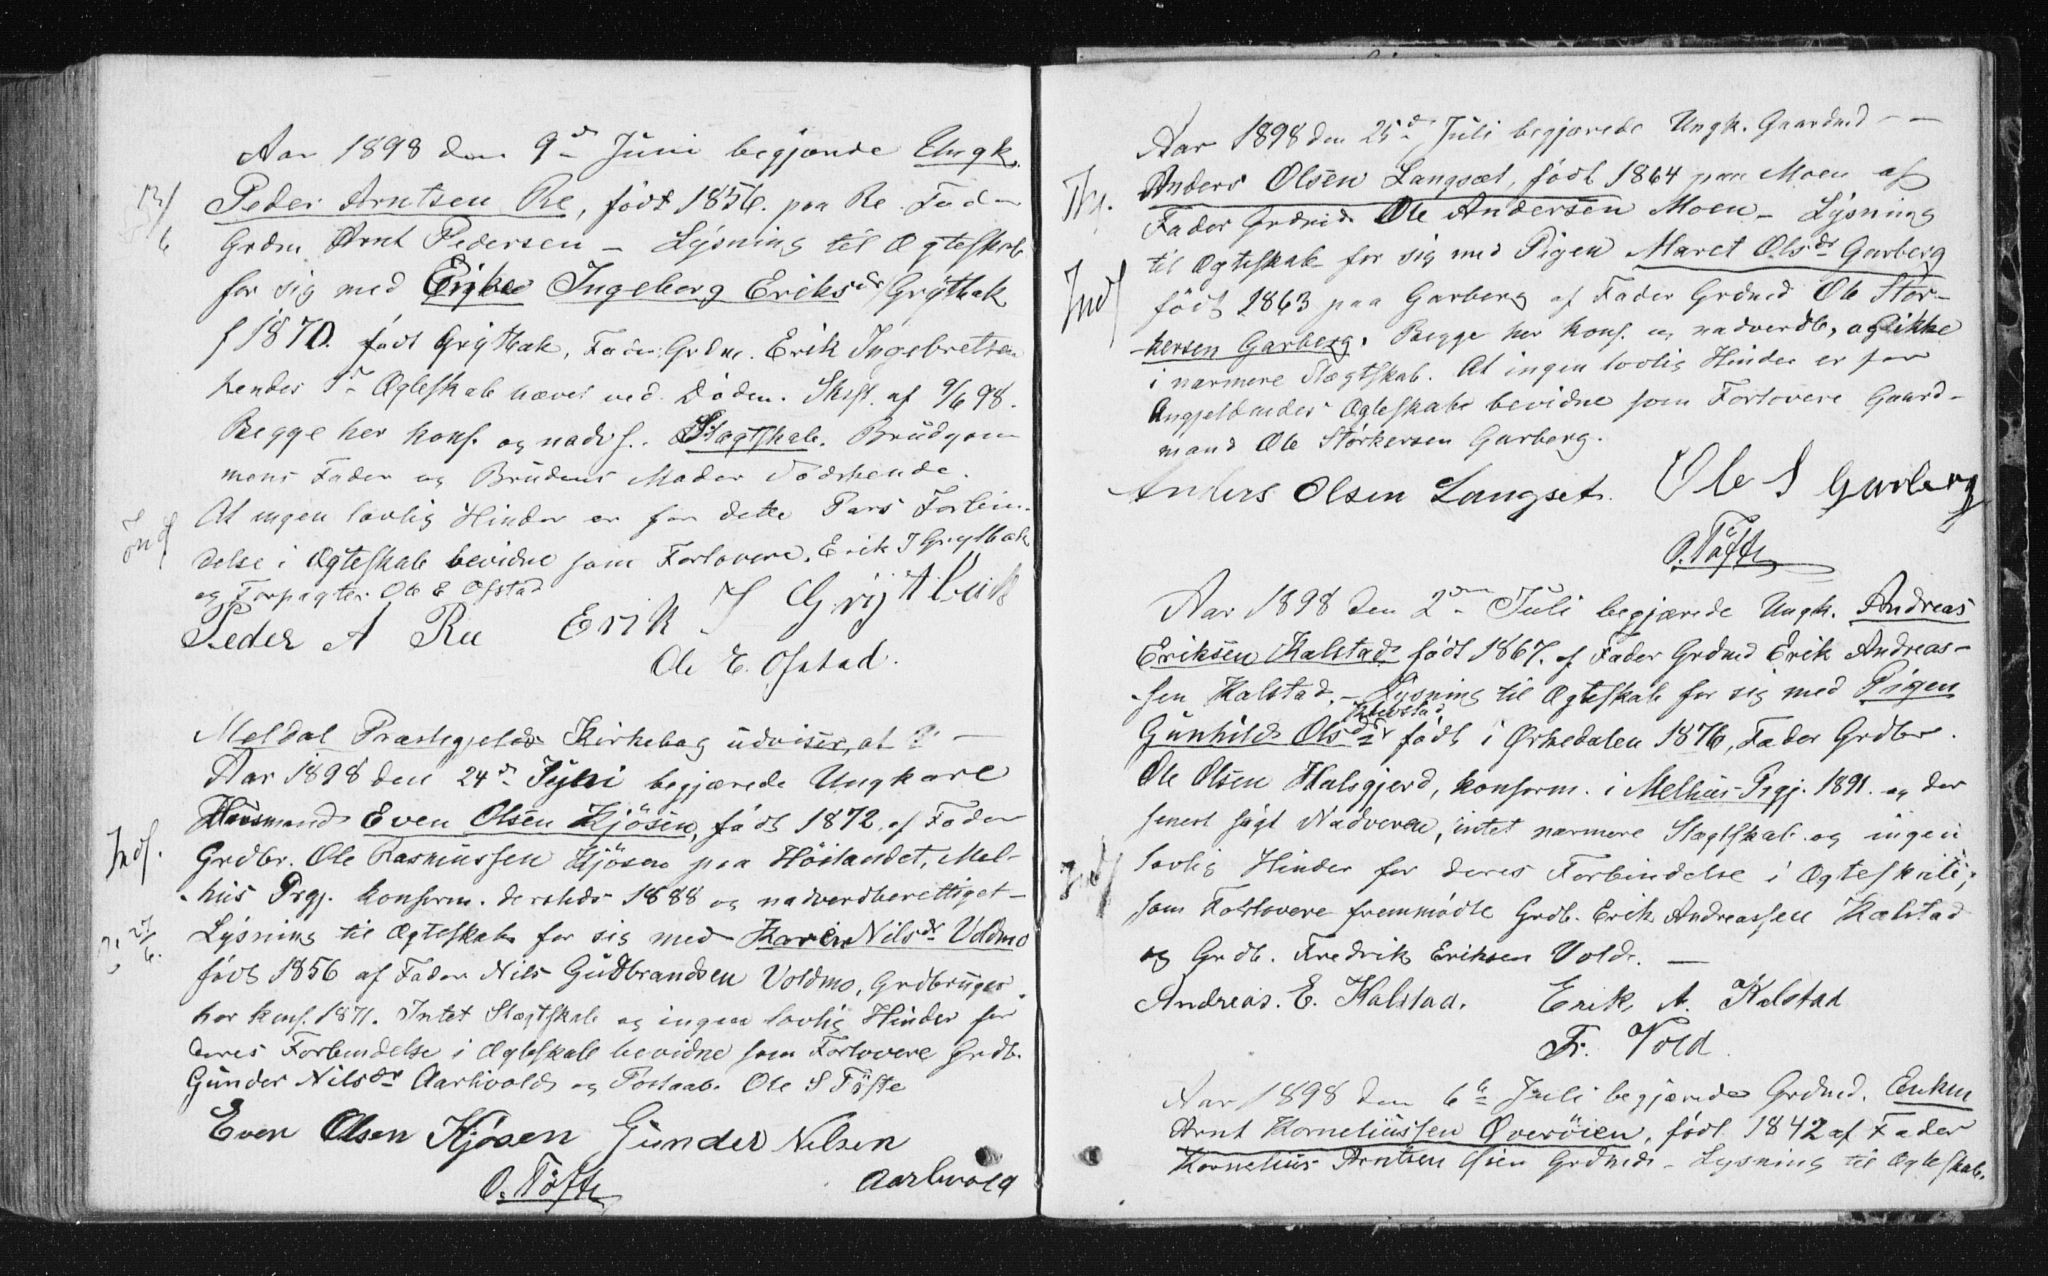 Aar 1898 den 9d Juni begjærede Ungk.
13/6
Peder Arntsen Re, født 1856. paa Re. Fad-
Grdm Arnt Pedersen – Lysning til Ægteskab
for sig med Enke Ingeborg Eriksdr Grytbak
f 1870. født Grytbak, Fader Grdm. Erik Ingebretsen
hendes Ægteskab hævet ved Døden. Skift. af 9/6 98.
Begge her konf. og nadv. Slægtskab. Brudgom-
mens Fader og Brudens Moder Sødskende.
At ingen lovlig Hinder er for dette Pars Forbin-
Ind
delse i Ægteskab bevidne som Forlovere. Erik I Grytbak
og Forpagter Ole E Ofstad
Peder A Ree Erik I Grytbak
Ole E. Ofstad.
Meldal Præstegjelds Kirkebog udviser, at
Aar 1898 den 24d Juni begjærede Ungkarl
Husmand Even Olsen Kjösen, født 1872, af Fader
Ind.
Grdbr. Ole Rasmussen Kjösen paa Höilandet, Mel-
hus Prgj. konferm. dersteds 1888 og nadverdberettiget –
Lysning til Ægteskab for sig med Karen Nilsdr Voldmo
27/6.
født 1856 af Fader Nils Gudbrandsen Voldmo, Grdbruger
her konf. 1871. Intet Slægtskab og ingen lovlig Hinder for
deres Forbindelse i Ægteskab bevidne som Forlovere Grdb.
Gunder Nils Aarhvold og Postaab. Ole S Töfte
Even Olsen Kjösen Gunder Nilsen
O. Töfte Aarhvold
Aar 1898 den 25d Juli begjærede Ungk. Gaardmd – –
Anders Olsen Langsæt, født 1864 paa Moen af
Fader Grdmd Ole Andersen Moen – Lysning
til Ægteskab for sig med Pigen Maret Olsdr Garberg
Ind
født 1863 paa Garberg af Fader Grdmd Ole Stor-
kersen Garberg. Begge her konf. og nadverdb, og ikke
i nærmere Slægtskab. At ingen lovlig Hinder er for
Angjeldendes Ægteskab bevidne som Forlovere Gaard-
mand Ole Störkersen Garberg.
Anders Olsen Langset. Ole S Garberg
O. Töfte
Aar 1898 den 2den Juli begjærede Ungk. Andreas
Eriksen Kalstad født 1867. af Fader Grdmd Erik Andreas-
sen Kalstad. – Lysning til Ægteskab for sig med Pigen
Gunhild Olsdr født i Örkedalen 1876, Fader Grdbr.
Ole Olsen Halsgjerd, konferm. i Melhus Prgj. 1891. og der
senest søgt Nadveren, intet nærmere Slægtskab og ingen
Ind
lovlig Hinder for deres Forbindelse i Ægteskab;
som Forlovere fremmødte Grdb. Erik Andreassen Kalstad
og Grdb. Fredrik Eriksen Vold. –
Andreas. E. Kalstad. Erik. A. Kalstad
Fr. Vold
Aar 1898 den 6te Juli begjærede Grdmd. Enkm
Arnt Korneliussen Överöien, født 1842 af Fader
Kornelius Arntsen Öien Grdmd – Lysning til Ægteskab.